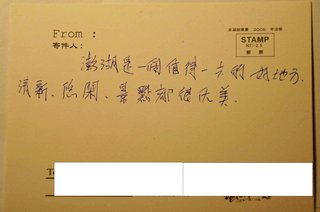 From :
寄件人:
STAMP
NT: 2.5
郵票
澎湖是一個值得一去的好地方.
清新、悠閑、景點都很優美.